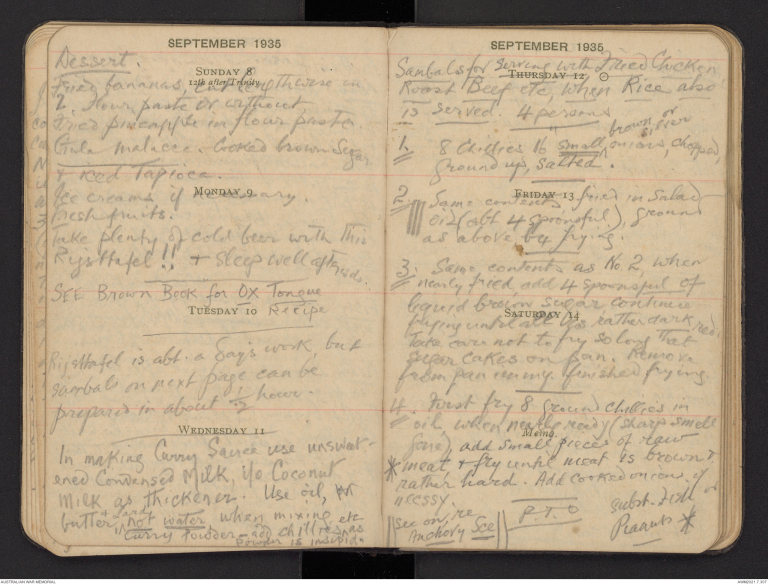 SEPTEMBER 1935
Dessert.
SUNDAY 8
12th after Trinity
Fried bananas, cut lengthwise in
2. Flour paste or without.
Fried pineapple in flour paste.
Gula Malacca. Cooked brown Sugar
+ Red Tapioca.
MONDAY 9
Ice creams if necessary.
Fresh fruits.
Take plenty of cold beer with this
Rijsttafel!! + sleep well afterwds.
SEE Brown Book for OX Tongue
Recipe
TUESDAY 10
Rijsttafel is abt. a day's work, but
sambals on next page can be
prepared in about ½ hour.
WEDNESDAY 11
In making Curry Sauce use unsweet-
ened Condensed Milk, i/o Coconut
Milk as thickener. Use oil,
butter, + lard, not water when mixing
Curry Powder - add chillies etc as
powder is insipid.
SEPTEMBER 1935
Sambals for serving with Fried Chicken
THURSDAY 12
Roast Beef etc, when Rice also
is served. 4 persons
1. 8 Chillies 16 small brown or silver onions, chopped,
ground up, salted.
FRIDAY 13
2. Same contents fried in Salad
oil (abt 4 spoonsful), ground
as above by frying.
3. Same contents as No 2, when
nearly fried add 4 spoonsful of
liquid brown sugar continue
SATURDAY 14
frying until all is rather dark red.
Take care not to fry so long that
sugar cakes on pan. Remove
from pan immy. finished frying.
4. First fry 8 ground chillies in
oil, when nearly ready (sharp smell
gone), add small pieces of raw
* meat + fry until meat is browned
rather hard. Add cooked onions if
necessy.
see on, re
Anchovy See
P.T.O
subst. Fish or
Peanuts *
AUSTRALIAN WAR MEMORIAL